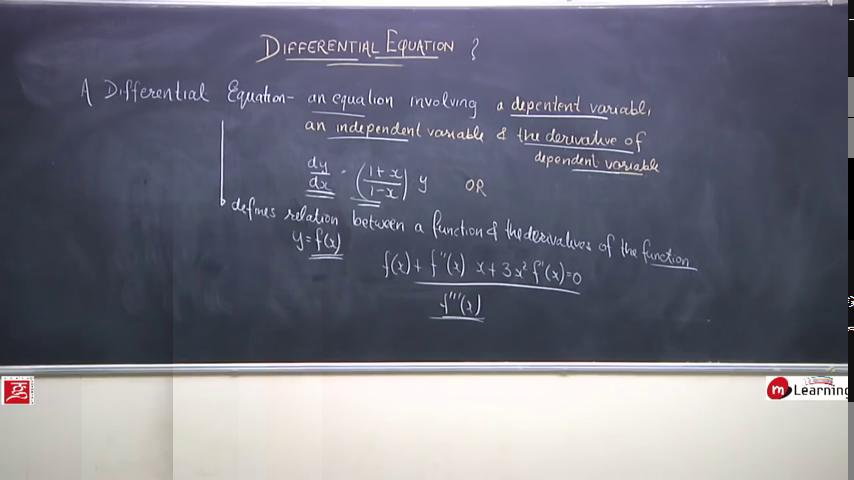 DIFFERENTIAL EQUATION ?
A Differential Equation - an equation involving a depentent variable,
an independent variable & the derivative of
dependent variable
dy/dx = (1+x/1-x) y OR
defines relation between a function & the derivatives of the function
y = f(x)
f(x) + f''(x) x + 3x² f'(x) = 0
f'''(x)
m Learning